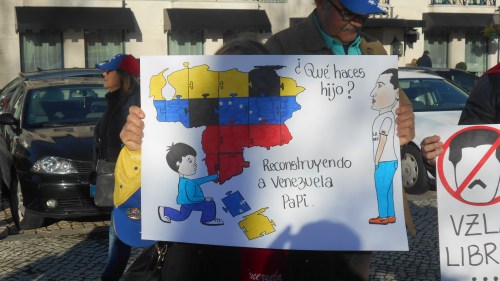 ¿Qué haces
hijo?
Reconstruyendo
a Venezuela
PaPi.
VZLA
LIBR